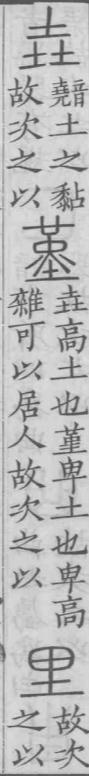 垚
音堯土之黏
故次之以
堇
垚高土也堇卑土也卑高
雜可以居人故次之以
里
故次
之以